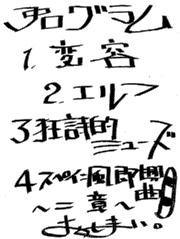 プログラム
1. 変容
2. エルフ
3 狂詩的
ミューズ
4 スペイン風即興曲
〜二章〜
おしまい。